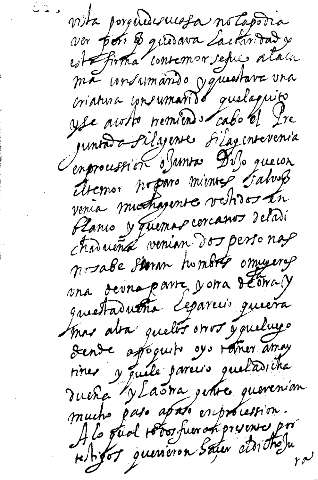 vista porque de su casa no la podia
ver pero quedava la claridad y
esta firma con temor se fue a la ca
ma consumando y questava una
criatura consumando que la quito
y se acosto temiendo cabo el Pre
juntada si la gente venia
en procession o junta Dijo que con
el temor no paro mientes salvo q
venia mucha gente vestidos en
blanco y que mas cercanos de la di
cha dueña venian dos personas
no sabe si eran hombres o mugeres
una de una parte y otra de otra y
questa dueña le parecio que era
mas alta que los otros y que luego
dende a poquito oyo tañer a may
tines y que le parecio que la dicha
dueña y la otra gente que venian
mucho paso a paso en procession.
A lo qual todos fueron presentes por
testigos que vieron hazer el dicho Ju
ra